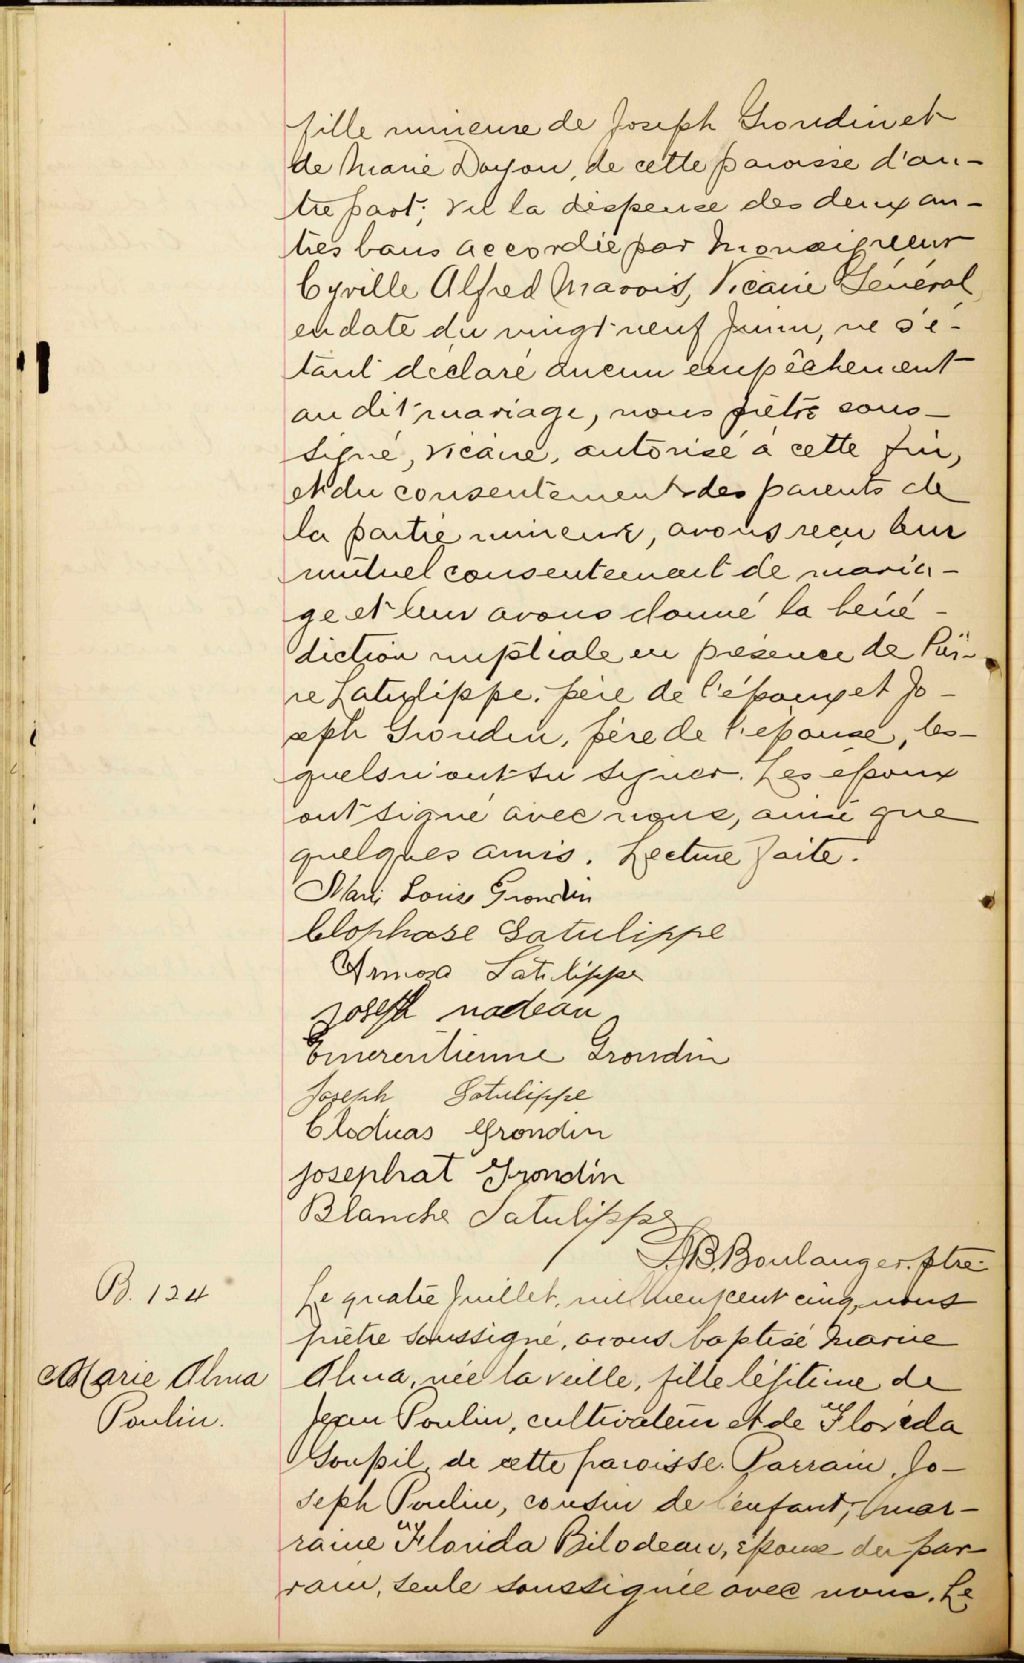 fille mineure de Joseph Grondin et
de Marie Doyon, de cette paroisse d'au-
tre part; vu la dispense des deux au-
tres bans accordée par Monseigneur
Cyrille Alfred Marois, Vicaire Général,
en date du vingt-neuf Juin, ne s'é-
tant déclaré aucun empêchement
au dit mariage, nous prêtre sous-
signé, vicaire, autorisé à cette fin,
et du consentement des parents de
la partie mineure, avons reçu leur
mutuel consentement de maria-
ge et leur avons donné la béné-
diction nuptiale en présence de Pier-
re Latulippe, père de l'époux et Jo-
seph Grondin, père de l'épouse, les-
quels n'ont su signer. Les époux
ont signé avec nous, ainsi que
quelques amis. Lecture faite.
Marie Louise Grondin
Clophase Latulippe
Armosa Latulippe
Joseph nadeau
Emerentienne Grondin
Joseph Latulippe
Cloduas Grondin
josephat Grondin
Blanche Latulippe
J.B. Boulanger. ptre.
B. 124
Marie Alma
Poulin.
Le quatre Juillet, mil neuf cent cinq, nous
prêtre soussigné, avons baptisé Marie
Alma, née la veille, fille légitime de
Jean Poulin, cultivateur et de Florida
Goupil, de cette paroisse. Parrain, Jo-
seph Poulin, cousin de l'enfant; mar-
raine Florida Bilodeau, épouse du par-
rain, seule soussignée avec nous. Le